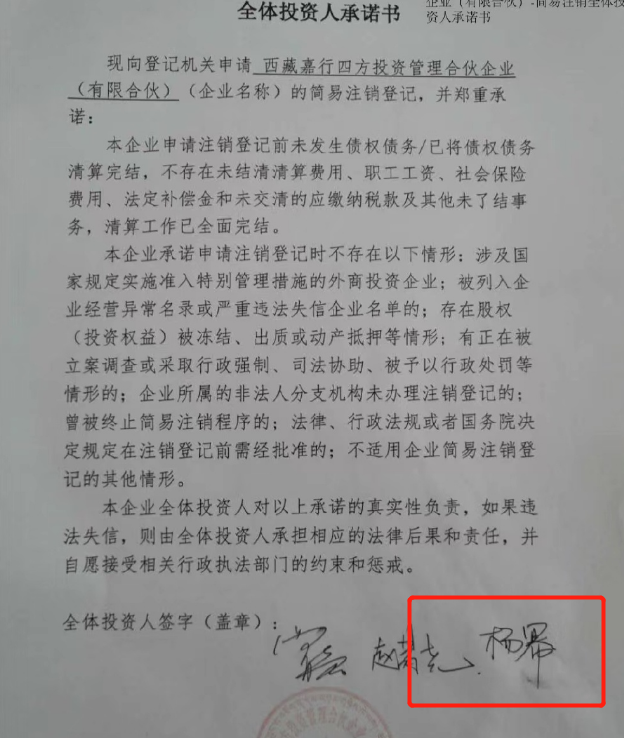 全体投资人承诺书
企业（有限合伙）:简易注销全体投
资人承诺书
现向登记机关申请 西藏嘉行四方投资管理合伙企业
（有限合伙）（企业名称）的简易注销登记，并郑重承
诺：
本企业申请注销登记前未发生债权债务/已将债权债务
清算完结，不存在未结清清算费用、职工工资、社会保险
费用、法定补偿金和未交清的应缴纳税款及其他未了结事
务，清算工作已全面完结。
本企业承诺申请注销登记时不存在以下情形：涉及国
家规定实施准入特别管理措施的外商投资企业；被列入企
业经营异常名录或严重违法失信企业名单的；存在股权
（投资权益）被冻结、出质或动产抵押等情形；有正在被
立案调查或采取行政强制、司法协助、被予以行政处罚等
情形的；企业所属的非法人分支机构未办理注销登记的；
曾被终止简易注销程序的；法律、行政法规或者国务院决
定规定在注销登记前需经批准的；不适用企业简易注销登
记的其他情形。
本企业全体投资人对以上承诺的真实性负责，如果违
法失信，则由全体投资人承担相应的法律后果和责任，并
自愿接受相关行政执法部门的约束和惩戒。
全体投资人签字（盖章）：
赵若尧 杨幂